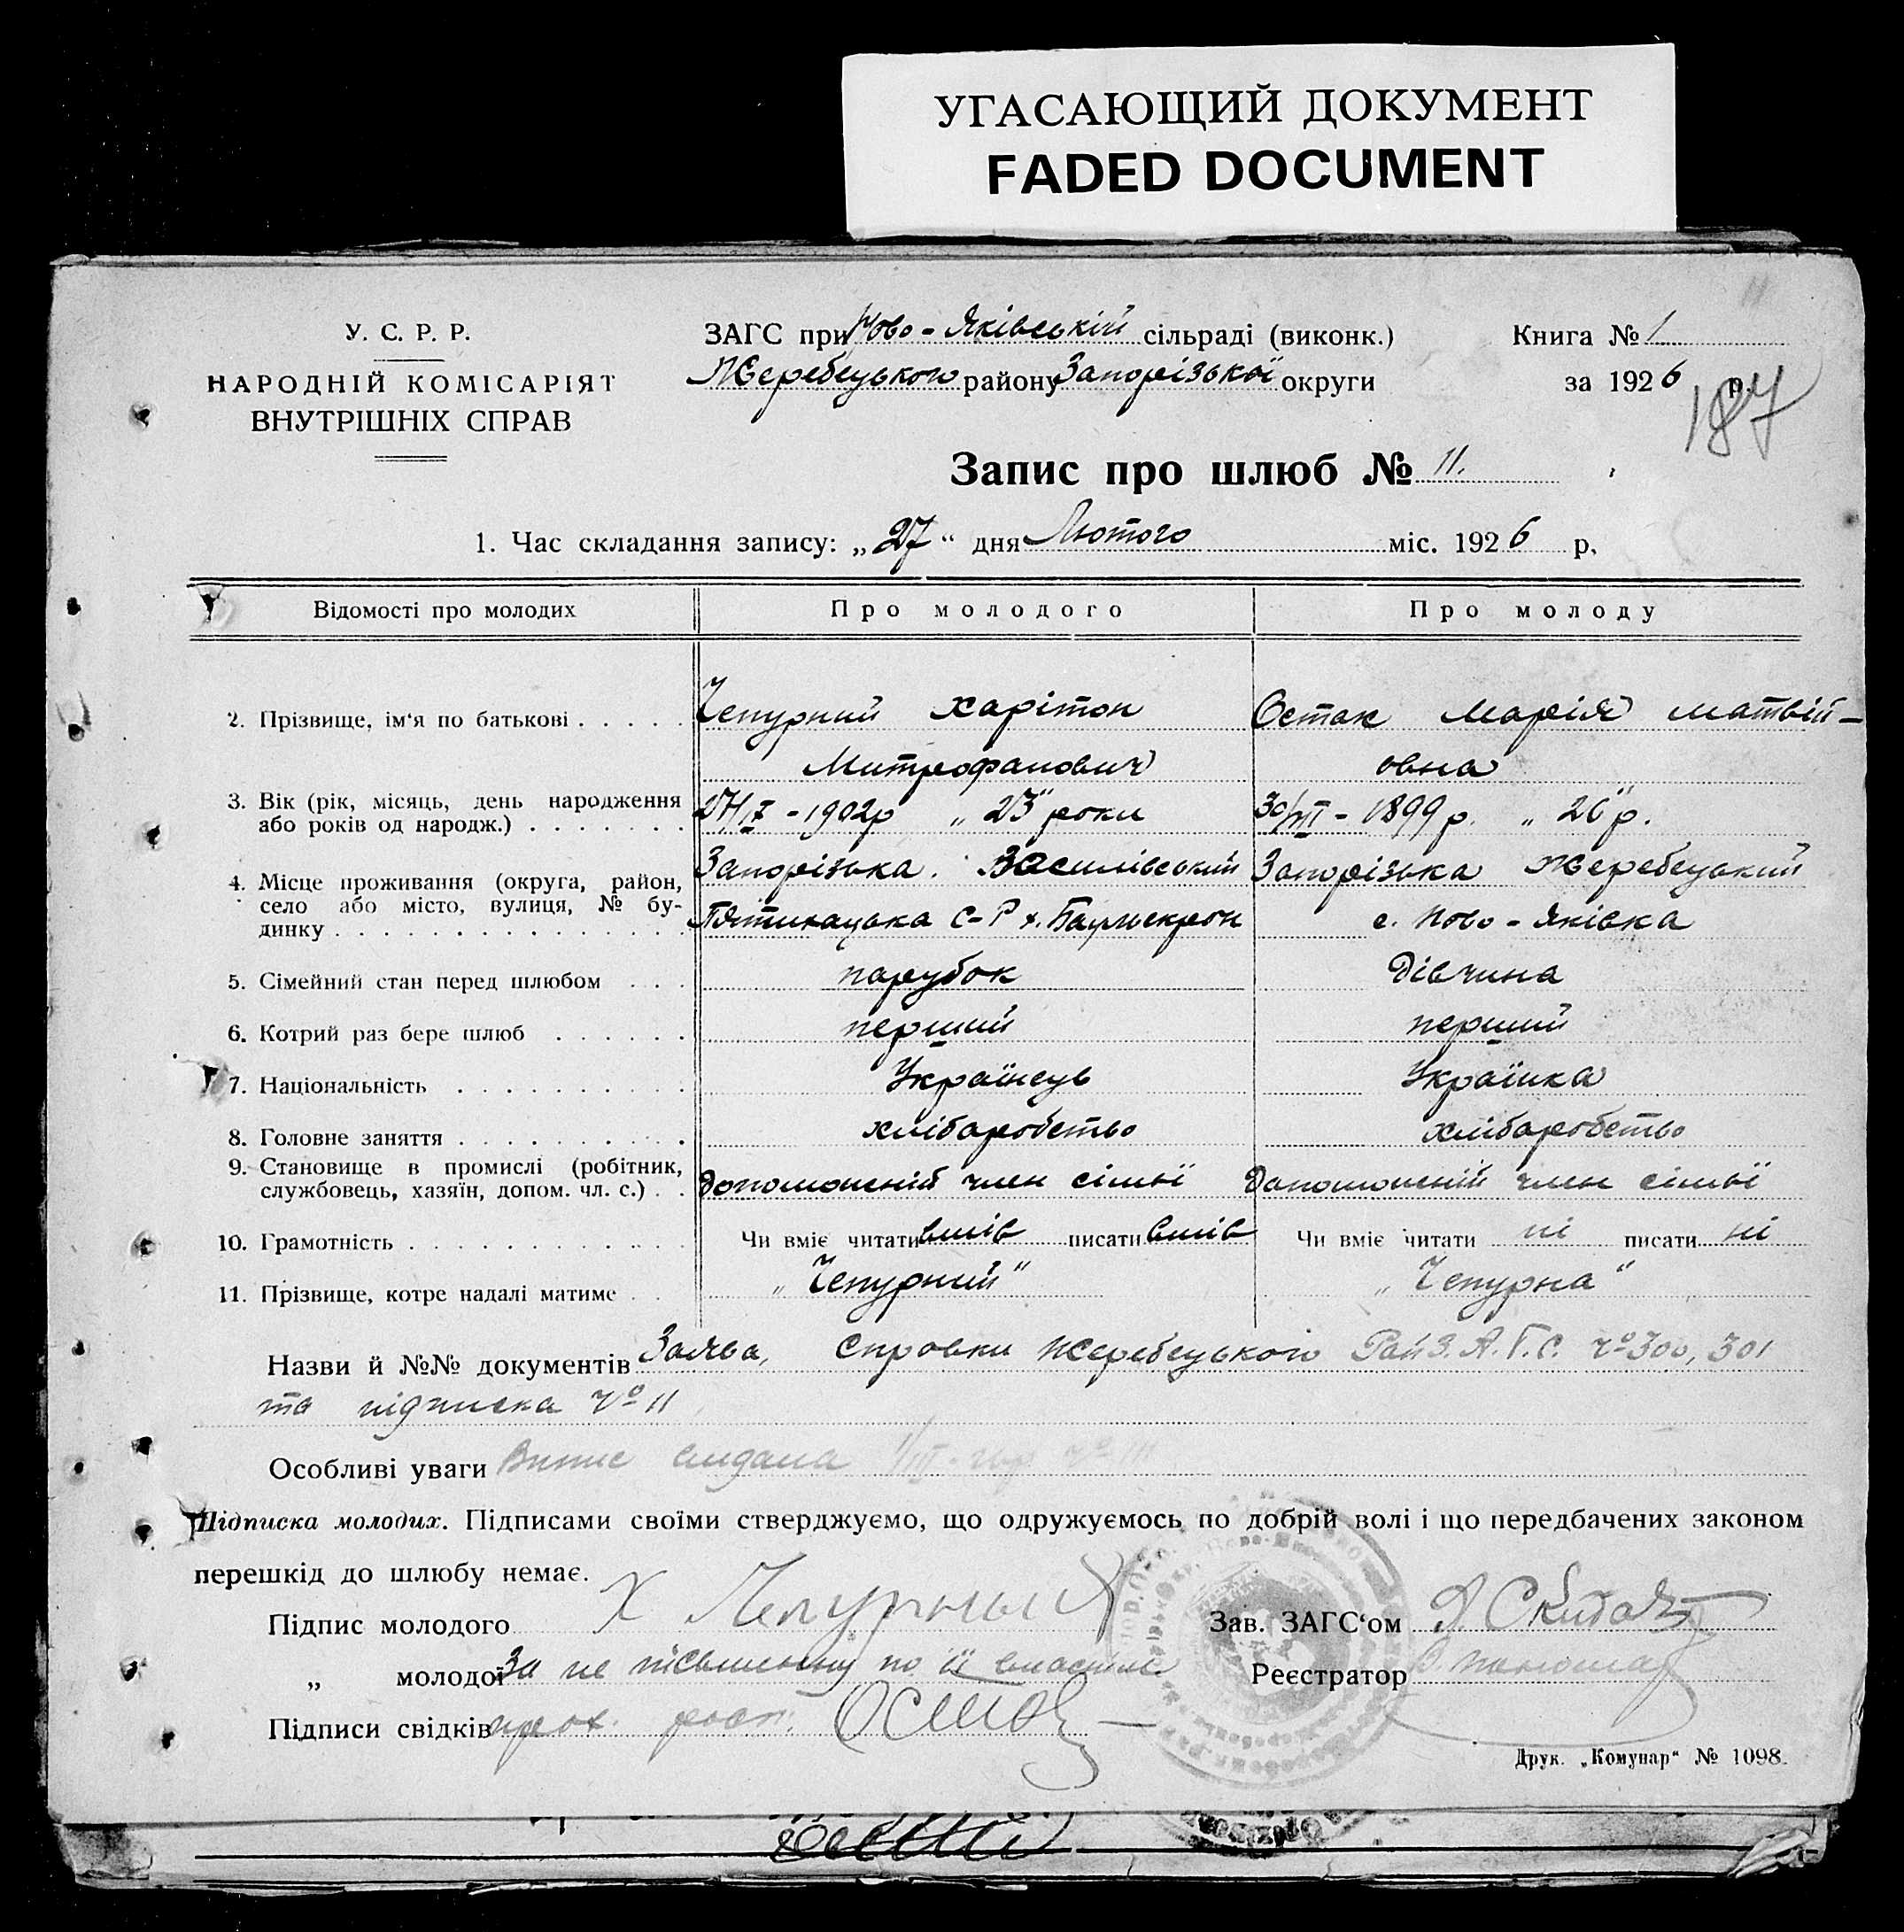 УГАСАЮЩИЙ ДОКУМЕНТ
FADED DOCUMENT
11
У. С. Р. Р.
НАРОДНІЙ КОМІСАРІЯТ
ВНУТРІШНІХ СПРАВ
ЗАГС при Ново-Яківській сільраді (виконк.)
Жеребецького району Запорізької округи
Книга № 1
за 1926 р.
187
Запис про шлюб № 11.
1. Час складання запису: „27“ дня Лютого міс. 1926 р.
Відомості про молодих Про молодого Про молоду
2. Прізвище, ім‘я по батькові Чепурний Харітон Остак Марія Матвій-
Митрофанович овна
3. Вік (рік, місяць, день народження 27/IX - 1902р „23" роки 30/VII - 1899 р. „26"р.
або років од народж.)
4. Місце проживання (округа, район, Запорізька. Василівський Запорізька Жеребецький
село або місто, вулиця, № бу-
динку Пятихацька С-Р х. с. Ново-Яківка
5. Сімейний стан перед шлюбом парубок дівчина
6. Котрий раз бере шлюб перший перший
7. Національність Українець Українка
8. Головне заняття хлібаробство хлібаробство
9. Становище в промислі (робітник,
службовець, хазяїн, допом. чл. с.) допоможній член сімьї допоможній член сімьї
10. Грамотність Чи вміє читати вмів писати вмів Чи вміє читати ні писати ні
11. Прізвище, котре надалі матиме „Чепурний" „Чепурна"
Назви й №№ документів Заява, справки Жеребецького Рай З.А.Г.С. № 300, 301
та підписка № 11
Особливі уваги Випис видана 1/III
Підписка молодих. Підписами своїми стверджуємо, що одружуємось по добрій волі і що передбачених законом
перешкід до шлюбу немає.
Підпис молодого Х Чепурный
Зав. ЗАГС‘ом
„ молодої За не письменну по її
Реєстратор
Підписи свідків прох. росп.
Друк. „Комунар“ № 1098.